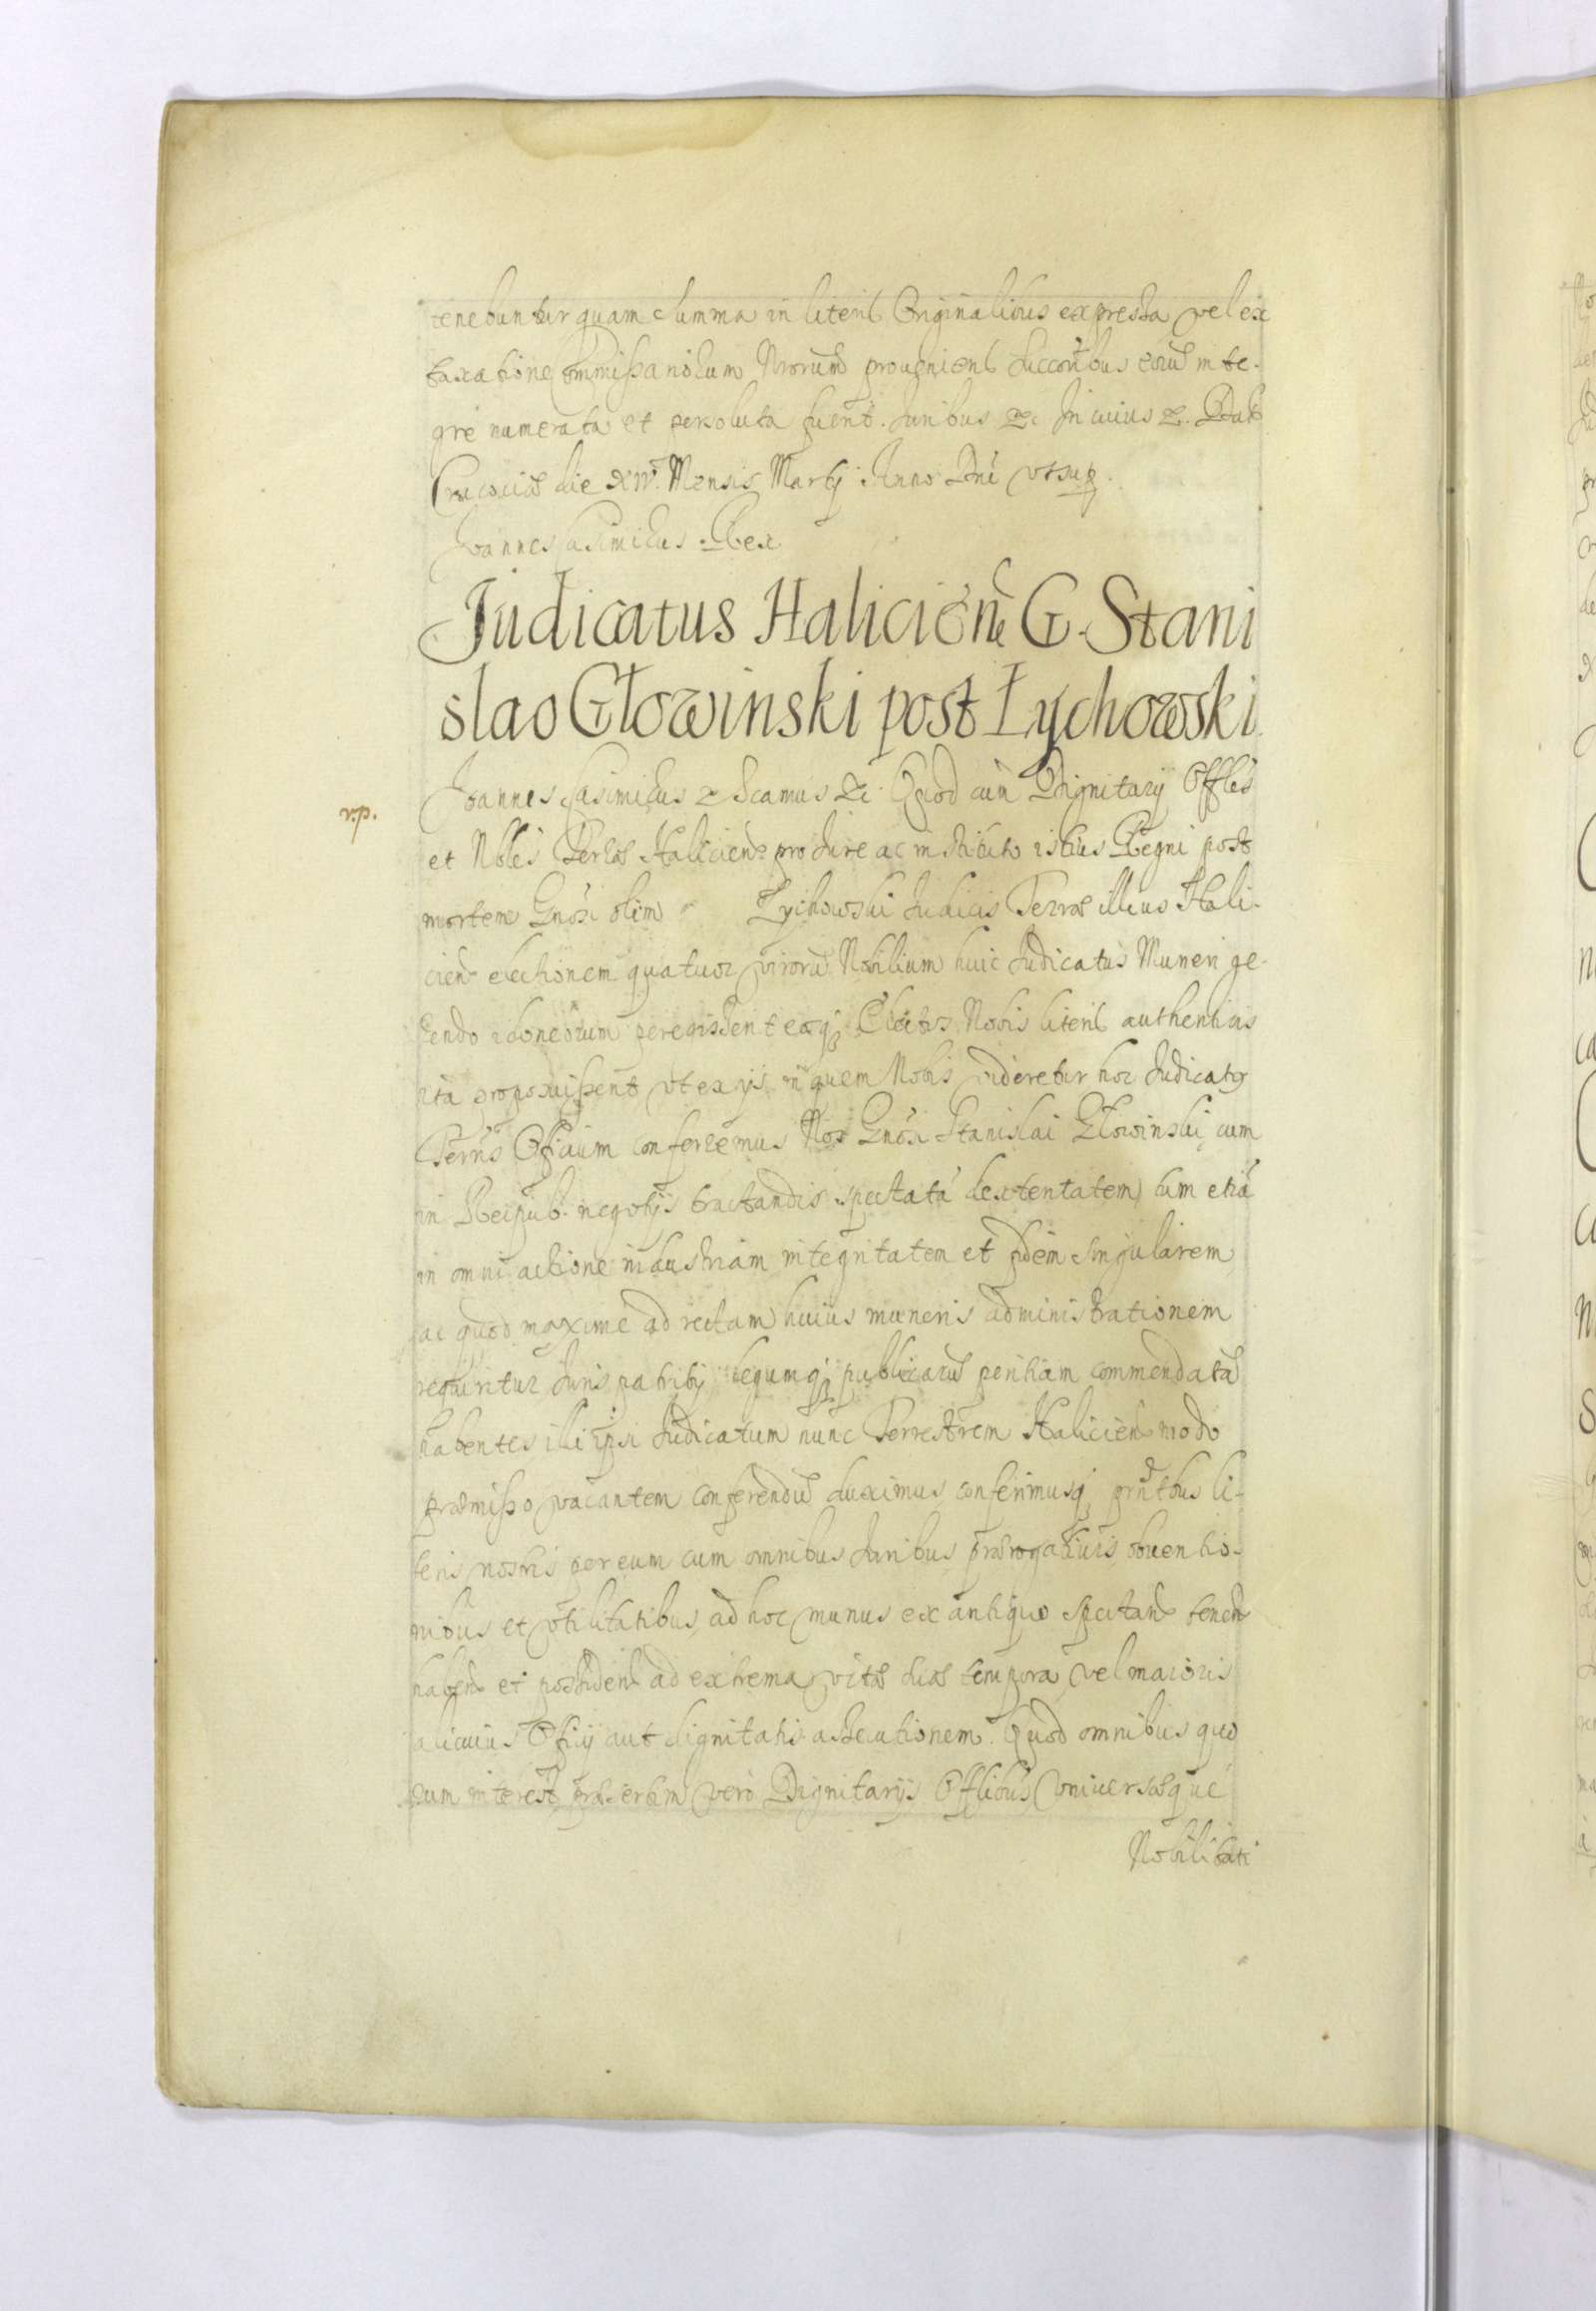 tenebuntur quam summa in literis Originalibus expressa vel ex
taxatione Commissariorum Nrorum proueniens succoribus eorum inte-
gre numerata et persoluta fuerit. Iuribus &c In cuius &. Dat
Cracoviae die XIV Mensis Martij Anno Dni vt sup.
Joannes Casimirus Rex
Judicatus Halicien G. Stani
slao Głowinski post Łychowski.
v.p.
Joannes Casimirus & Scamus &c. Quod cum Dignitarij Offles
et Nbles Terrae Haliciens pro Iure ac instituto istius Regni post
mortem Gnosi olim Łychowski Judicis Terrae illius Hali-
cien electionem quatuor virorum Nobilium huic Judicatus Muneri ge-
rendo idoneorum peregissent eosq Electos Nobis literis authenticis
ita proposuissent vt ex ijs in quem Nobis videretur hoc Judicatus
Terris Officium conferremus Nos Gnosi Stanislai Głowinski cum
in Reipub. negotijs tractandis spectatam dexteritatem tum etia
in omni actione industriam integritatem et fidem singularem
ac quod maxime ad rectam huius muneris administrationem
requiritur Iuris patrij legumq publicarum peritiam commendata
habentes illi ipsi Judicatum nunc Terrestrem Halicien modo
praemisso vacantem conferendum duximus conferimusq prntibus li-
teris nostris per eum cum omnibus Iuribus praerogatiuis obuentio-
nibus et vtilitatibus ad hoc munus ex antiquo spectan tenen
haben et possiden ad extrema vitae suae tempora vel maioris
alicuius Officij aut dignitatis assecutionem. Quod omnibus quo
rum interest praesertim vero Dignitarijs Offlibus Vniuersaeque
Nobilitati